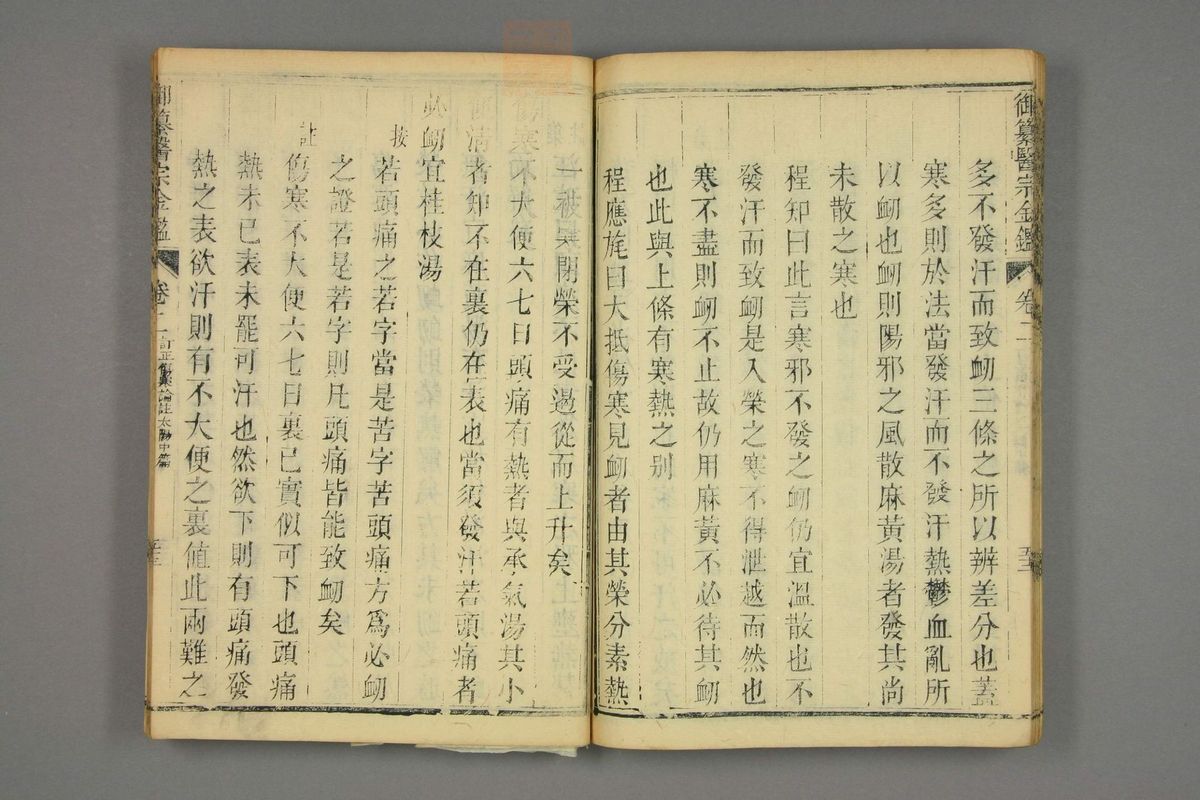 御纂醫宗金鑑 卷二
多不發汗而致衂三條之所以辨差分也蓋
寒多則於法當發汗而不發汗熱鬱血亂所
以衂也衂則陽邪之風散麻黃湯者發其尚
未散之寒也
程知曰此言寒邪不發之衂仍宜溫散也不
發汗而致衂是入榮之寒不得泄越而然也
寒不盡則衂不止故仍用麻黃不必待其衂
也此與上條有寒熱之別
程應旄曰大抵傷寒見衂者由其榮分素熱
一被寒閉榮不受遏從而上升矣
傷寒不大便六七日頭痛有熱者與承氣湯其小
便清者知不在裏仍在表也當須發汗若頭痛者
必衂宜桂枝湯
按若頭痛之若字當是苦字苦頭痛方爲必衂
之證若是若字則凡頭痛皆能致衂矣
註傷寒不大便六七日裏已實似可下也頭痛
熱未已表未罷可汗也然欲下則有頭痛發
熱之表欲汗則有不大便之裏値此兩難之
御纂醫宗金鑑 卷二 訂正傷寒論註太陽中篇